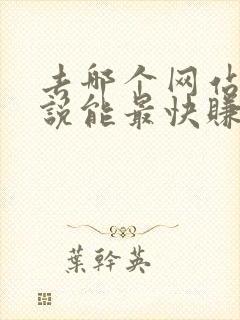 去哪个网佔
說能最快賺
葉幹英